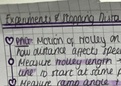 Experiments & Planning
Motion of trolley on
how distance affects speed
Measure trolley length
to start at same p
Measure ramp angle